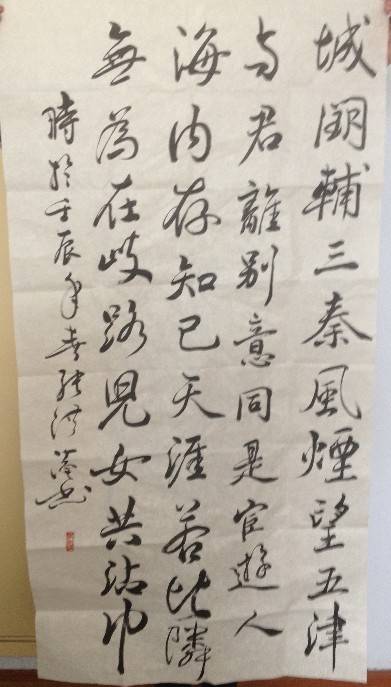 城闕輔三秦風煙望五津
与君離別意同是宦遊人
海内存知己天涯若比隣
無為在歧路兒女共沾巾
時於壬辰年春書